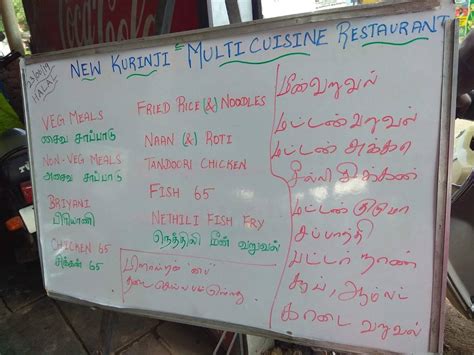 Coca-Cola
NEW KURINJI = MULTICUISINE RESTAURANT
23/09/19
HALAL
VEG MEALS
சைவ சாப்பாடு
NON-VEG MEALS
அசைவ சாப்பாடு
BRIYANI
பிரியாணி
CHICKEN 65
சிக்கன் 65
FRIED RICE (&) NOODLES
NAAN (&) ROTI
TANDOORI CHICKEN
FISH 65
NETHILI FISH FRY
நெத்திலி மீன் வறுவல்
பிளாஸ்டிக் பை
தடை செய்யப்பட்டுள்ளது
மீன்வறுவல்
மட்டன் வறுவல்
மட்டன் சுக்கா
சில்லி சிக்கன்
மட்டன் குருமா
சப்பாத்தி
பட்டர் நாண்
ஆம்லட்
காடை வறுவல்